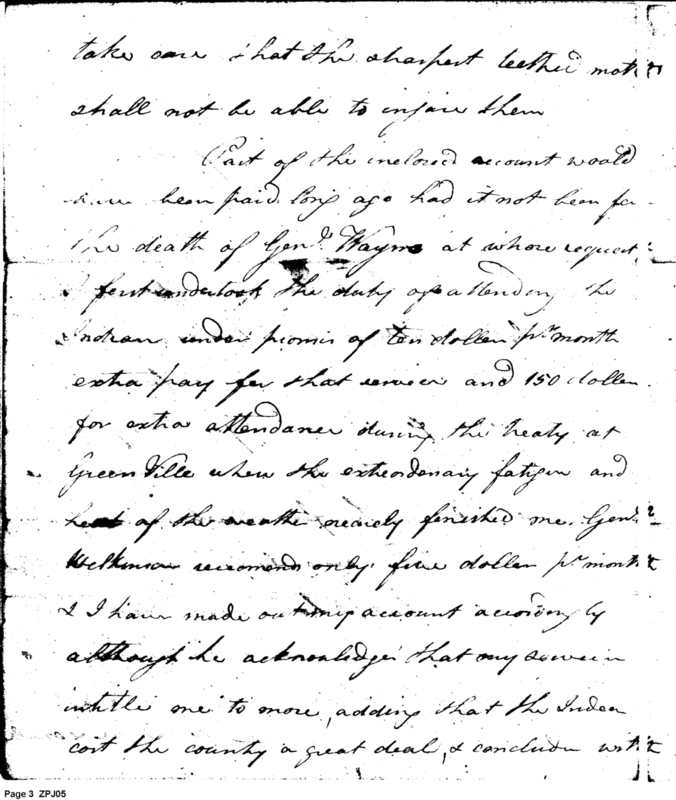 take care that the sharpest teethed moth
shall not be able to injure them
Part of the inclosed account would
have been paid long ago had it not been for
the death of Genl. Wayne at whose request
I first undertook the duty of attending the
Indian under promis of ten dollars pr. month
extra pay for that service and 150 dollars
for extra attendance during the treaty at
GreenVille when the extraordinary fatigue and
heat of the weather nearly finished me. Genl.
Wilkinson recomends only five dollars pr. month
& I have made out my account accordingly
although he acknowledges that my services
intitle me to more, adding that the Indian
cost the county a great deal, & concludes with
Page 3 ZPJ05